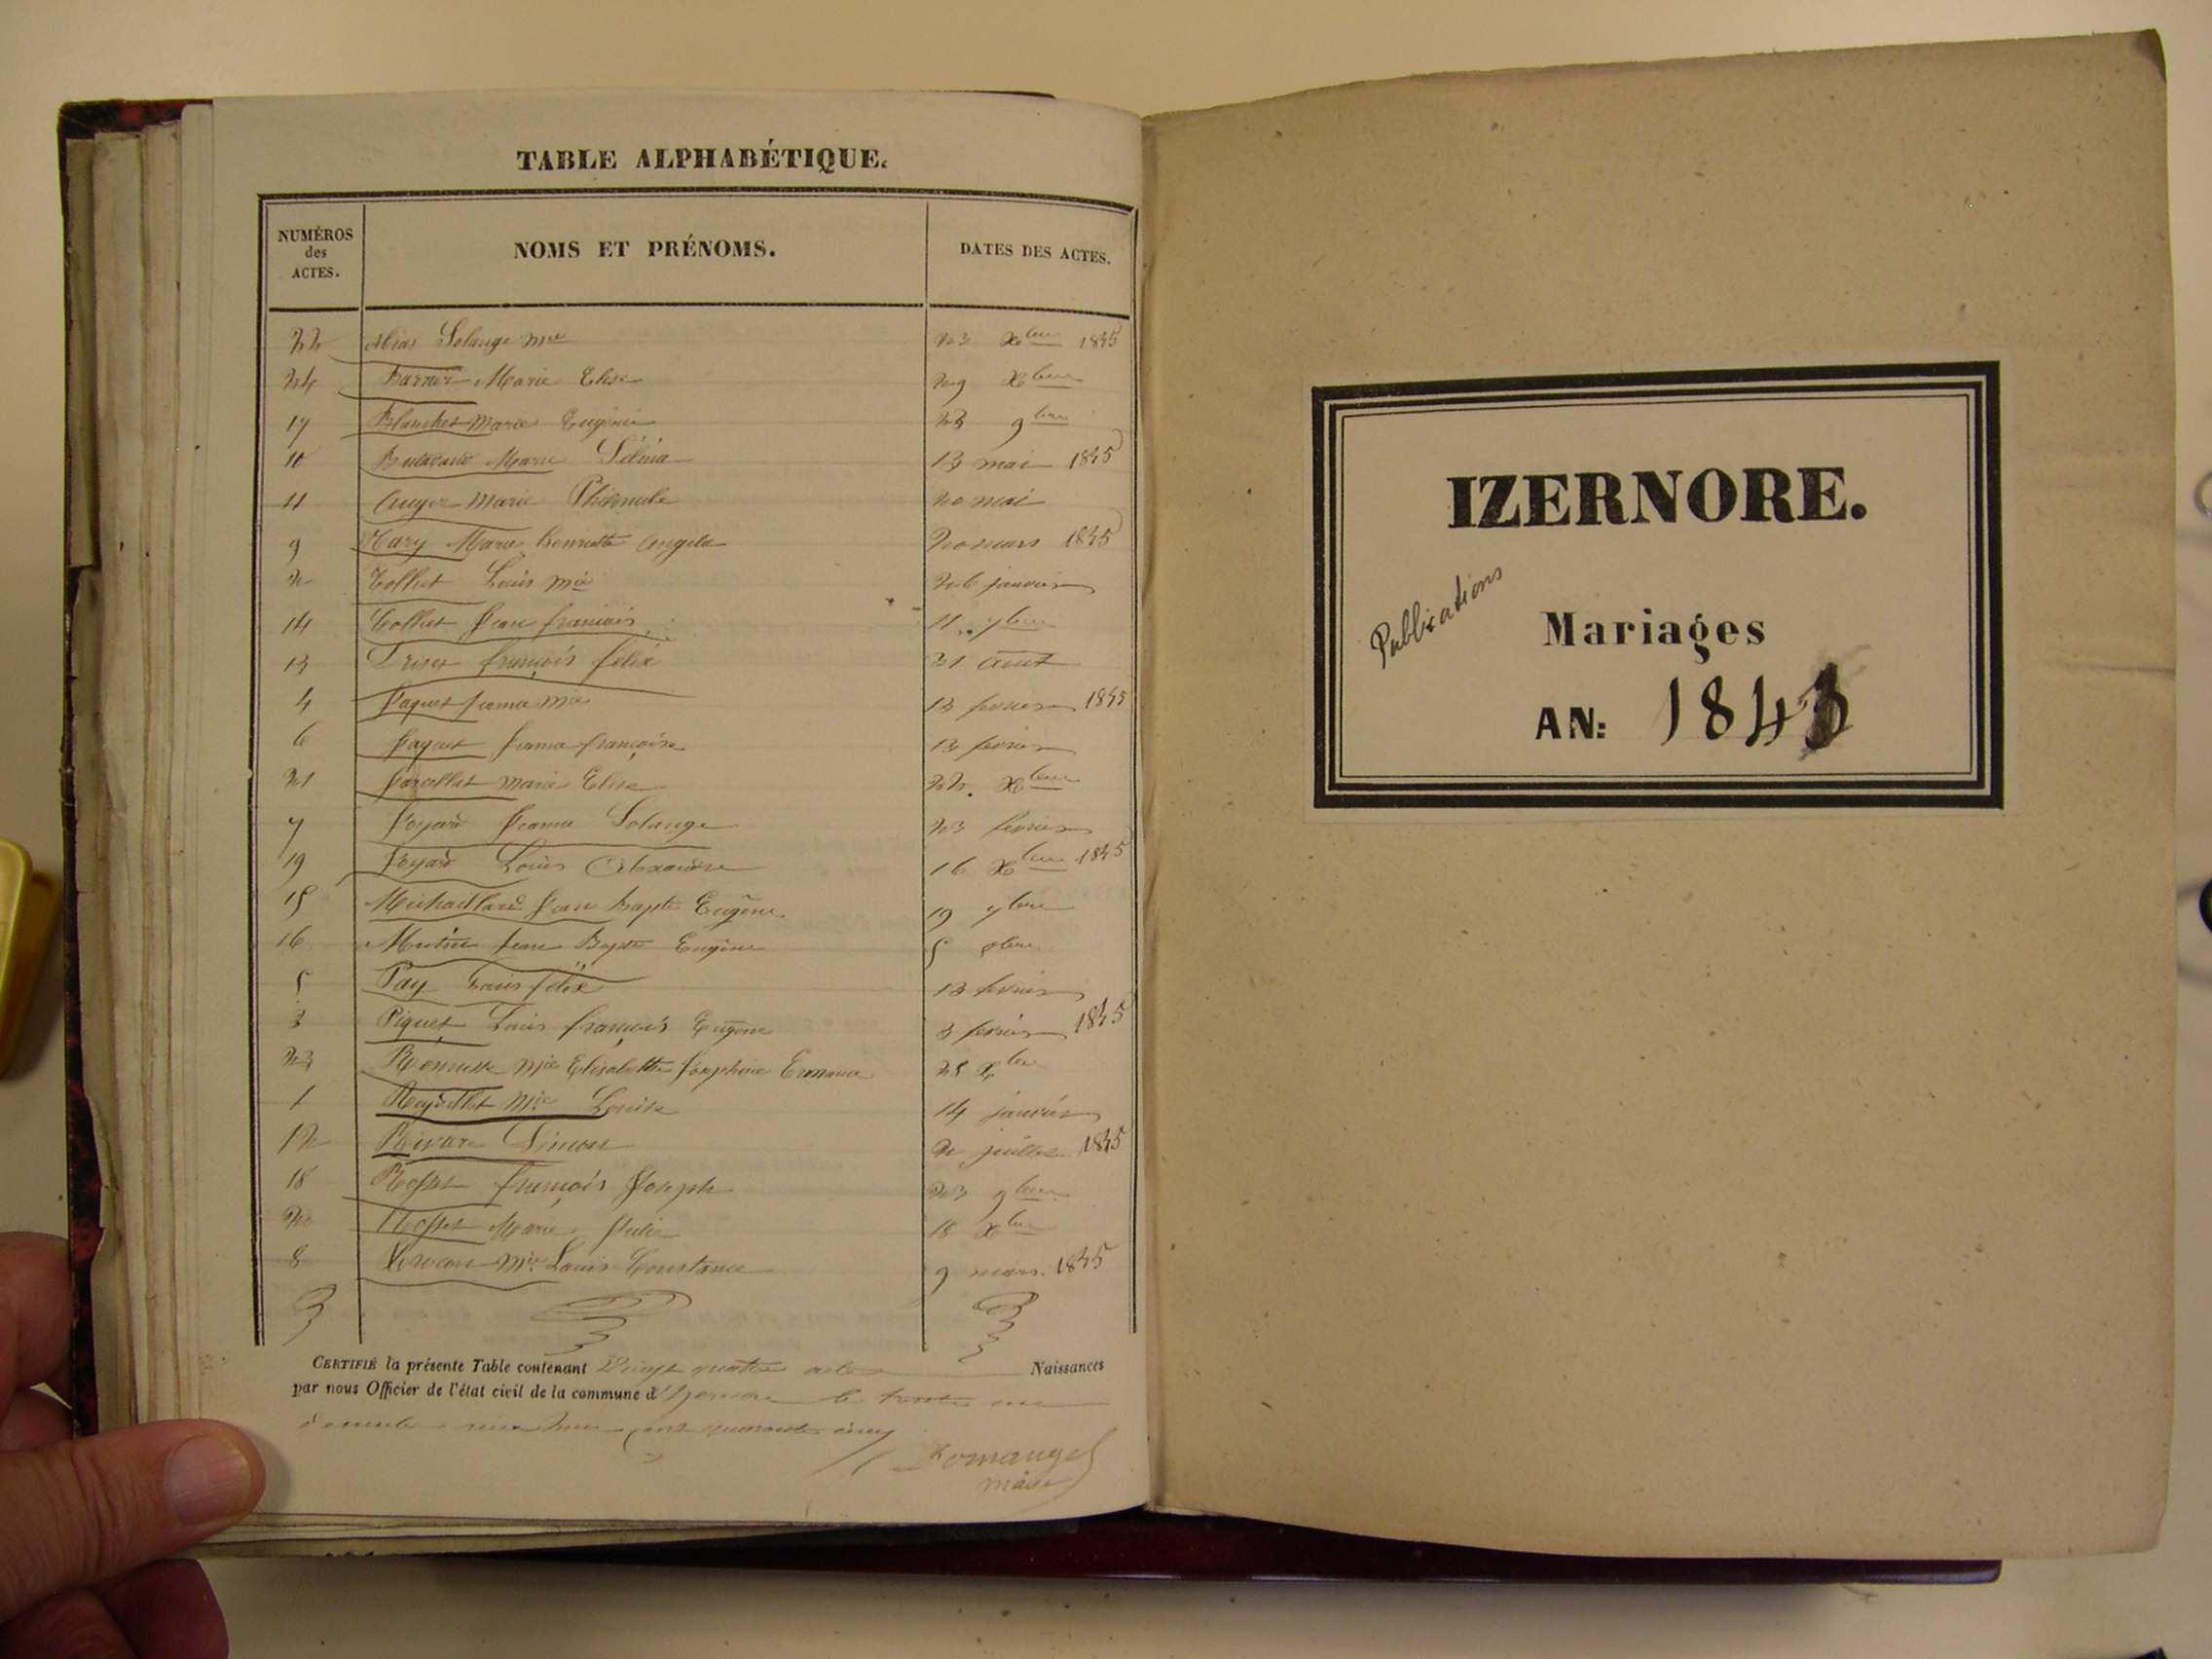 TABLE ALPHABÉTIQUE.
NUMÉROS
des
ACTES.
NOMS ET PRÉNOMS.
DATES DES ACTES.
22 Solange Mie 23 Xbre 1845
24 Marie Elise 29 Xbre
17 Blanchet Marie Eugénie 23 9bre
10 Marie 13 mai 1845
11 Marie 20 mai
9 Marie henriette Angela 20 mars 1845
2 Louis Mie 26 janvier
14 jean françois 11 7bre
13 françois félix 21 Août
4 Jaquet jeanne Mie 13 février 1845
6 Jaquet jeanne françoise 13 février
21 Marie Elise 22. Xbre
7 Joyard Jeanne Solange 23 février
19 Joyard Louis Alexandre 16 Xbre 1845
15 Michaillard jean bapte Eugène 19 7bre
16 jean Bapte Eugène 5 8bre
5 Pay Louis félix 13 février
3 Piquet Louis françois Eugène 3 février 1845
23 Mie Elisabeth Josephine 25 Xbre
1 Reydellet Mie Louise 14 janvier
12 Simon 2 juillet 1845
18 Rosset françois Joseph 23 9bre
20 Rosset Marie Julie 18 Xbre
8 Mie Louis Constance 9 mars. 1845
CERTIFIÉ la présente Table contenant Vingt quatre actes Naissances
par nous Officier de l'état civil de la commune d'Izernore le trente un
décembre mil huit cent quarante cinq
Romanget
maire
IZERNORE.
Publications
Mariages
AN: 1843